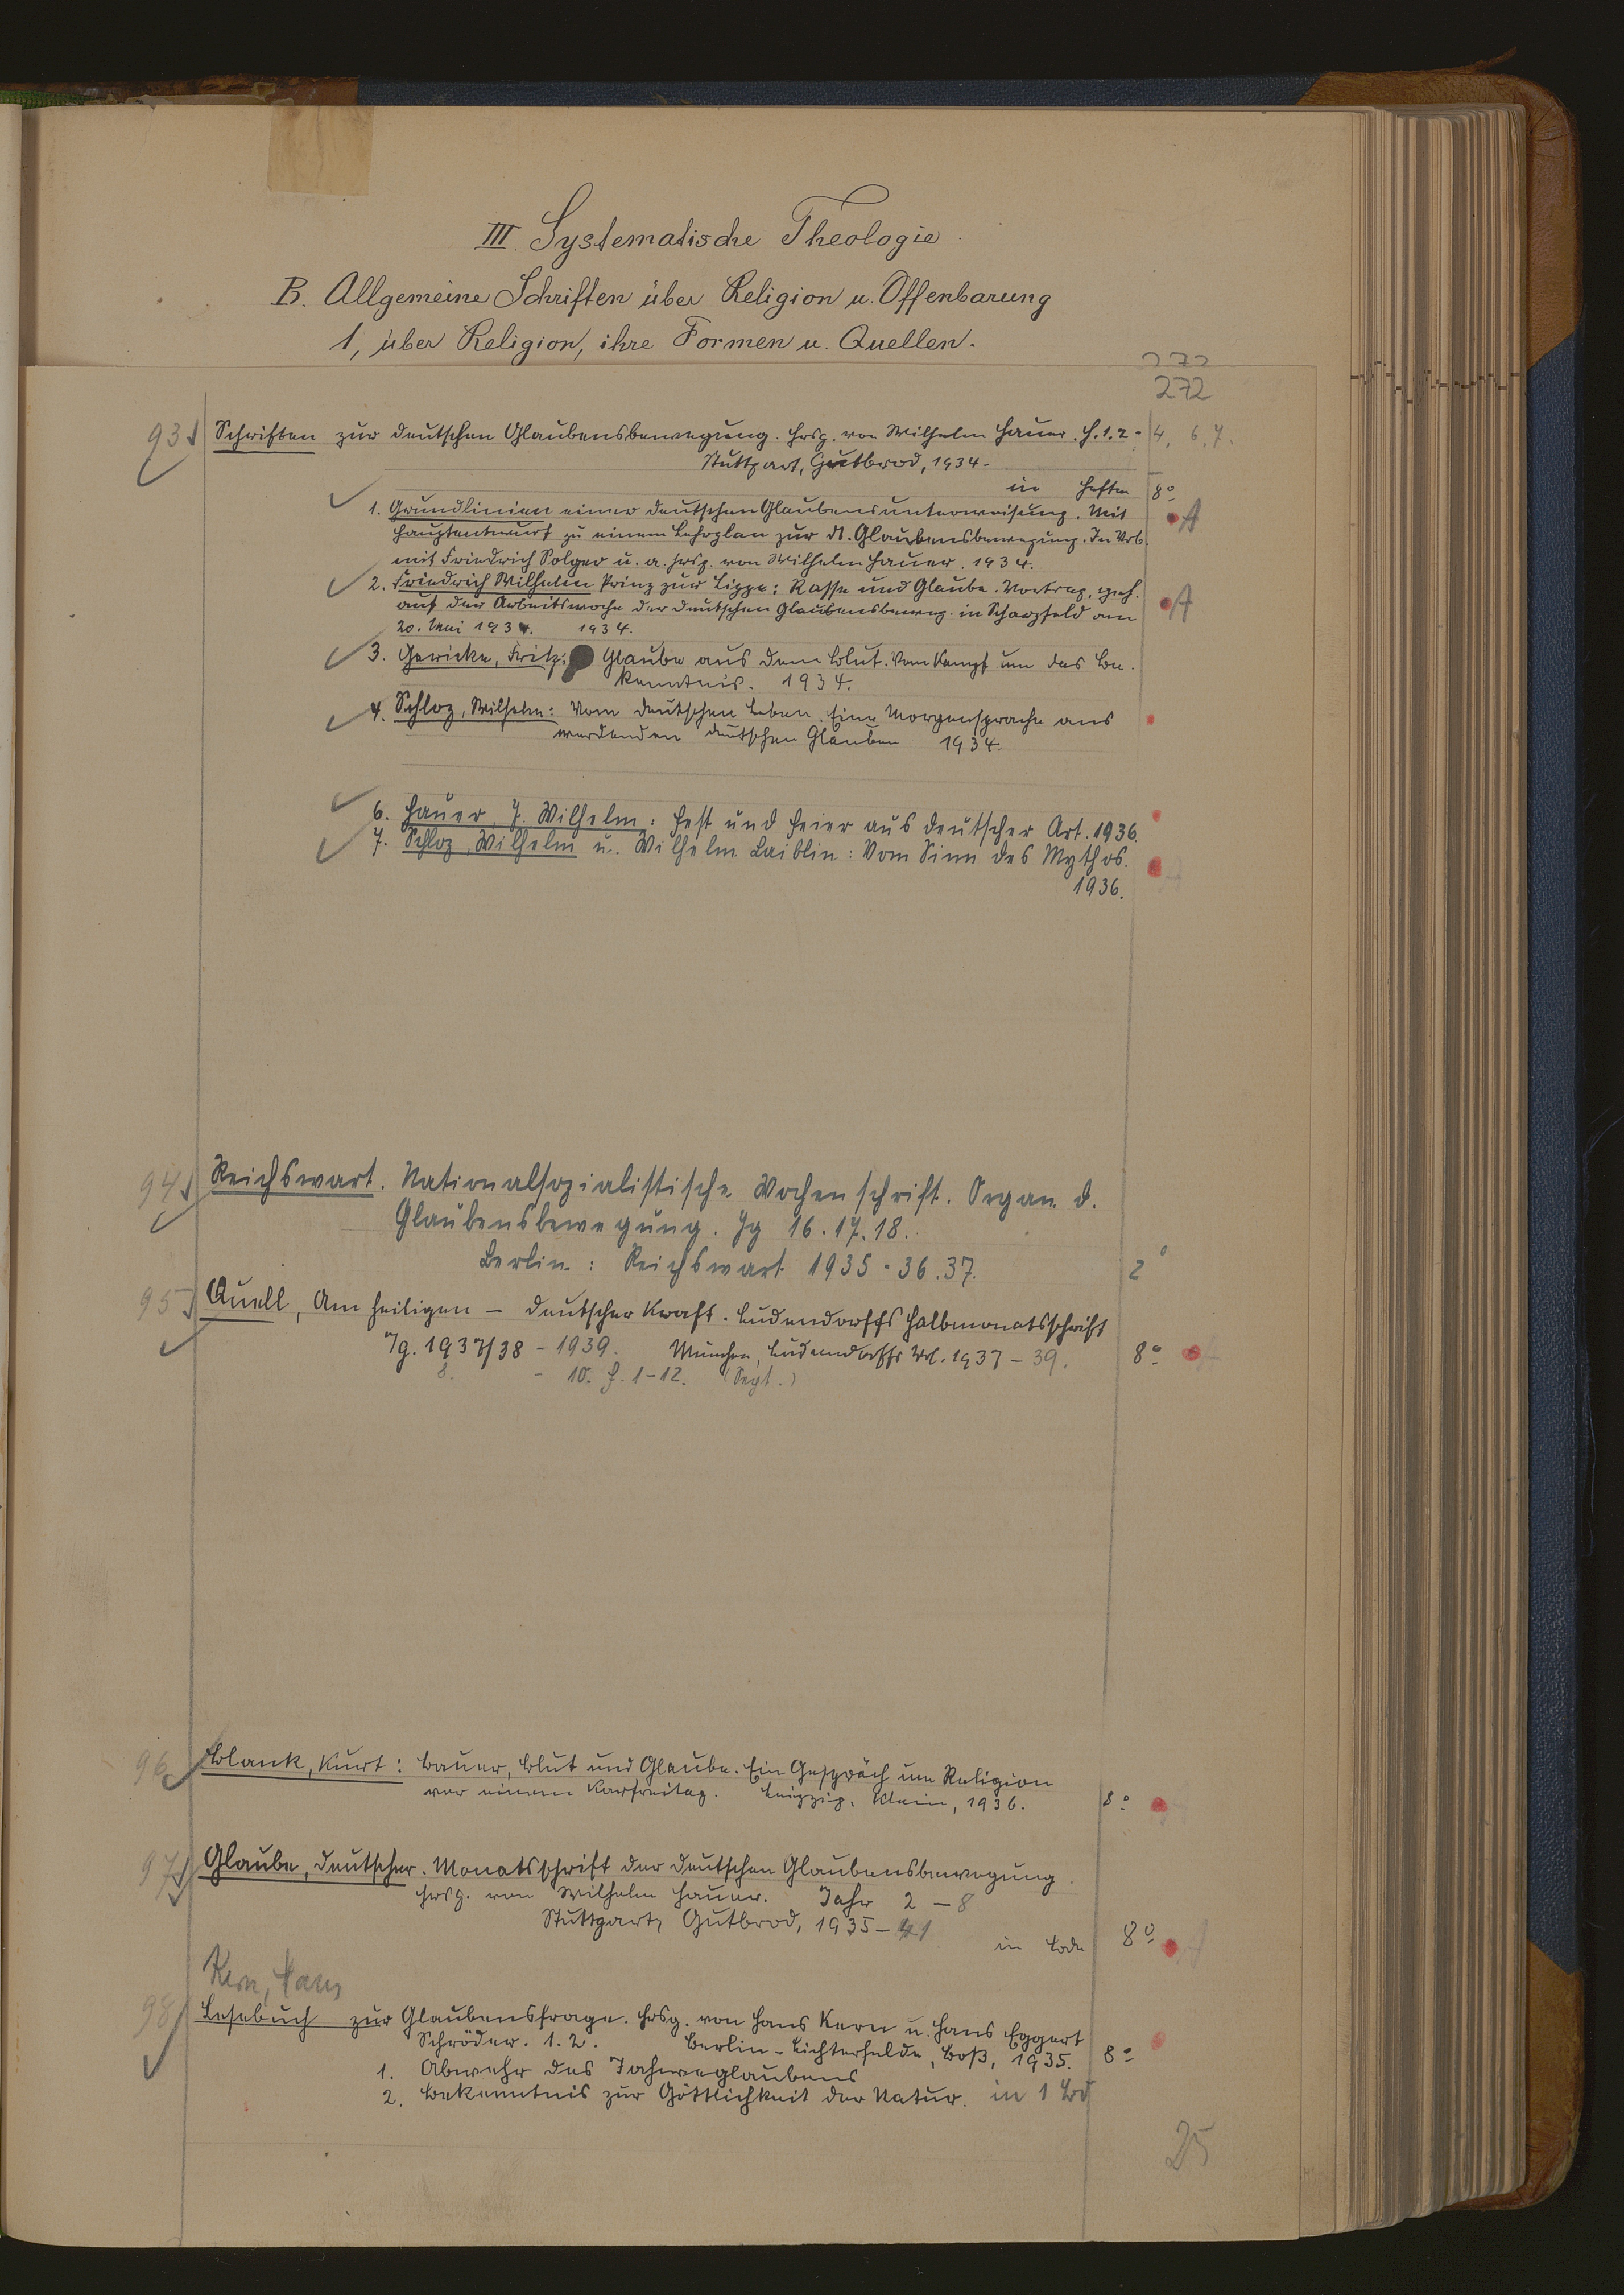 III. Systematische Theologie.
B. Allgemeine Schriften über Religion u. Offenbarung
1, über Religion, ihre Formen u. Quellen.
272
272
93 Schriften zur deutschen Glaubensbewegung. Hrsg. von Wilhelm Hauer. H. 1. 2 - 4, 6, 7.
Stuttgart, Gutbrod, 1934-
in Heften 8°
1. Grundlinien einer deutschen Glaubensunterweisung. Mit A
Hauptentwurf zu einem Lehrplan zur dt. Glaubensbewegung. In Verb.
mit Friedrich Solger u. a. hrsg. von Wilhelm Hauer. 1934.
2. Friedrich Wilhelm Prinz zur Lippe: Rasse und Glaube. Vortrag, geh. A
auf der Arbeitswoche der deutschen Glaubensbeweg. in Scharzfeld am
20. Mai 1934. 1934.
3. Gericke, Fritz: Glaube aus dem Blut. Vom Kampf um das Be-
kenntnis. 1934.
4. Schloz, Wilhelm: Vom deutschen Leben. Eine Morgensprache aus
werdenden deutschen Glauben 1934.
6. Hauer, J. Wilhelm: Fest und Feier aus deutscher Art. 1936.
7. Schloz, Wilhelm u. Wilhelm Laiblin: Vom Sinn des Mythos.
1936.
94 Reichswart. Nationalsozialistische Wochenschrift. Organ d.
Glaubensbewegung. Jg 16. 17. 18.
Berlin: Reichswart 1935. 36. 37. 2°
95 Quell, Am heiligen - deutscher Kraft. Ludendorffs Halbmonatsschrift
Jg. 1937/38 - 1939. München, Ludendorffs Verl. 1937 - 39. 8°
8. - 10. H. 1-12. (Sept.)
96 Blank, Kurt: Bauer, Blut und Glaube. Ein Gespräch um Religion
vor einem Karfreitag. Leipzig, Klein, 1936. 8°
97 Glaube, deutscher. Monatsschrift der deutschen Glaubensbewegung.
Hrsg. von Wilhelm Hauer. Jahr 2 - 8
Stuttgart, Gutbrod, 1935 - 41
in Bde 8°
Kern, Hans
98 Lesebuch zur Glaubensfrage. Hrsg. von Hans Kern u. Hans Eggert
Schröder. 1. 2. Berlin-Lichterfelde, Boß, 1935. 8°
1. Abwehr des Jahweglaubens
2. Bekenntnis zur Göttlichkeit der Natur. in 1 Bd
25